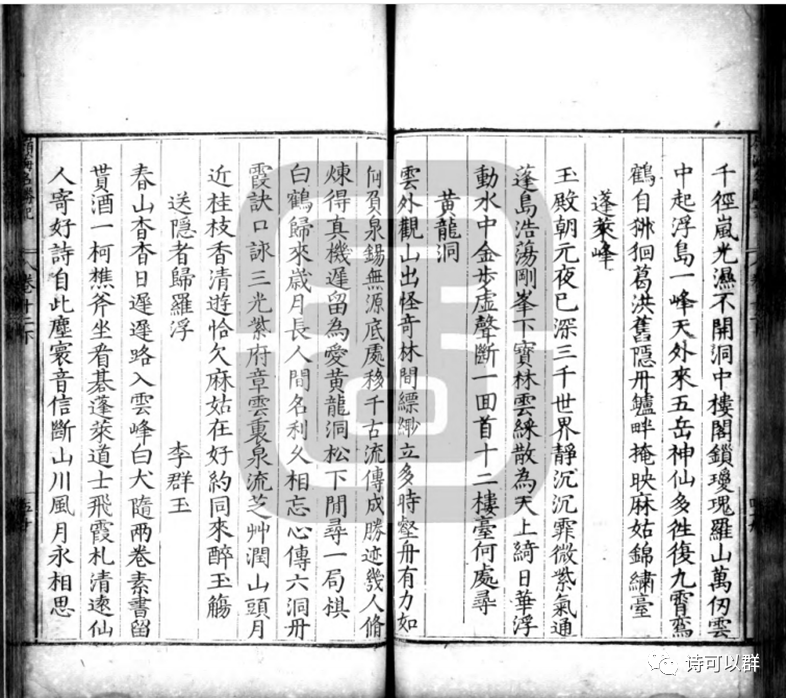 千徑嵐光濕不開洞中樓閣鎖瓊瑰羅山萬仞雲
中起浮島一峰天外來五岳神仙多徃復九霄鸞
鶴自徘徊葛洪舊隱丹鑪畔掩映麻姑錦繡臺
蓬萊峰
玉殿朝元夜已深三千世界靜沉沉霏微紫氣通
蓬島浩蕩剛峯下寶林雲綵散為天上綺日華浮
動水中金步虛聲斷一回首十二樓臺何處尋
黃龍洞
雲外觀山出怪竒林間縹緲立多時壑舟有力如
何負泉錫無源底處移千古流傳成勝迹幾人脩
煉得真機遲留為愛黃龍洞松下閒尋一局棋
白鶴歸來歲月長人間名利久相忘心傳六洞丹
霞訣口詠三光紫府章雲裏泉流芝艸潤山頭月
近桂枝香清遊恰欠麻姑在好約同來醉玉觴
送隱者歸羅浮 李群玉
春山杳杳日遲遲路入雲峰白犬隨兩卷素書留
貰酒一柯樵斧坐看碁蓬萊道士飛霞札清遠仙
人寄好詩自此塵寰音信斷山川風月永相思
卷十二下
诗可以群